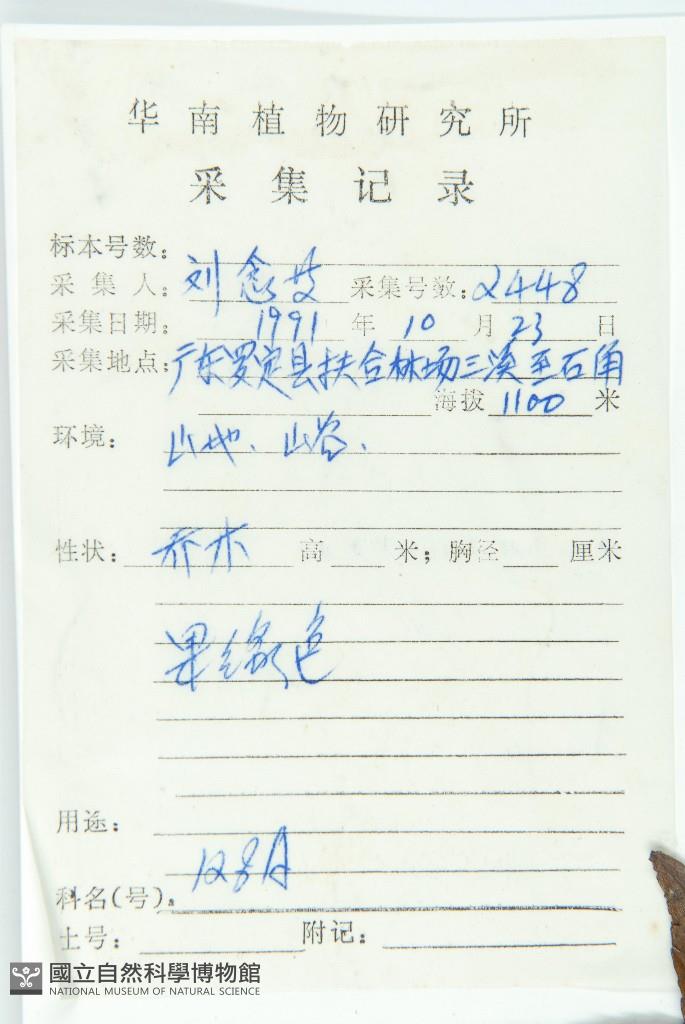 华南植物研究所
采集记录
标本号数:
采集人: 刘念 采集号数: 2448
采集日期: 1991 年 10 月 23 日
采集地点: 广东罗定县扶合林场三溪至石角
海拔 1100 米
环境: 山地、山谷、
性状: 乔木 高 米; 胸径 厘米
果绿色
用途:
科名(号): 128A
土号: 附记:
國立自然科學博物館
NATIONAL MUSEUM OF NATURAL SCIENCE